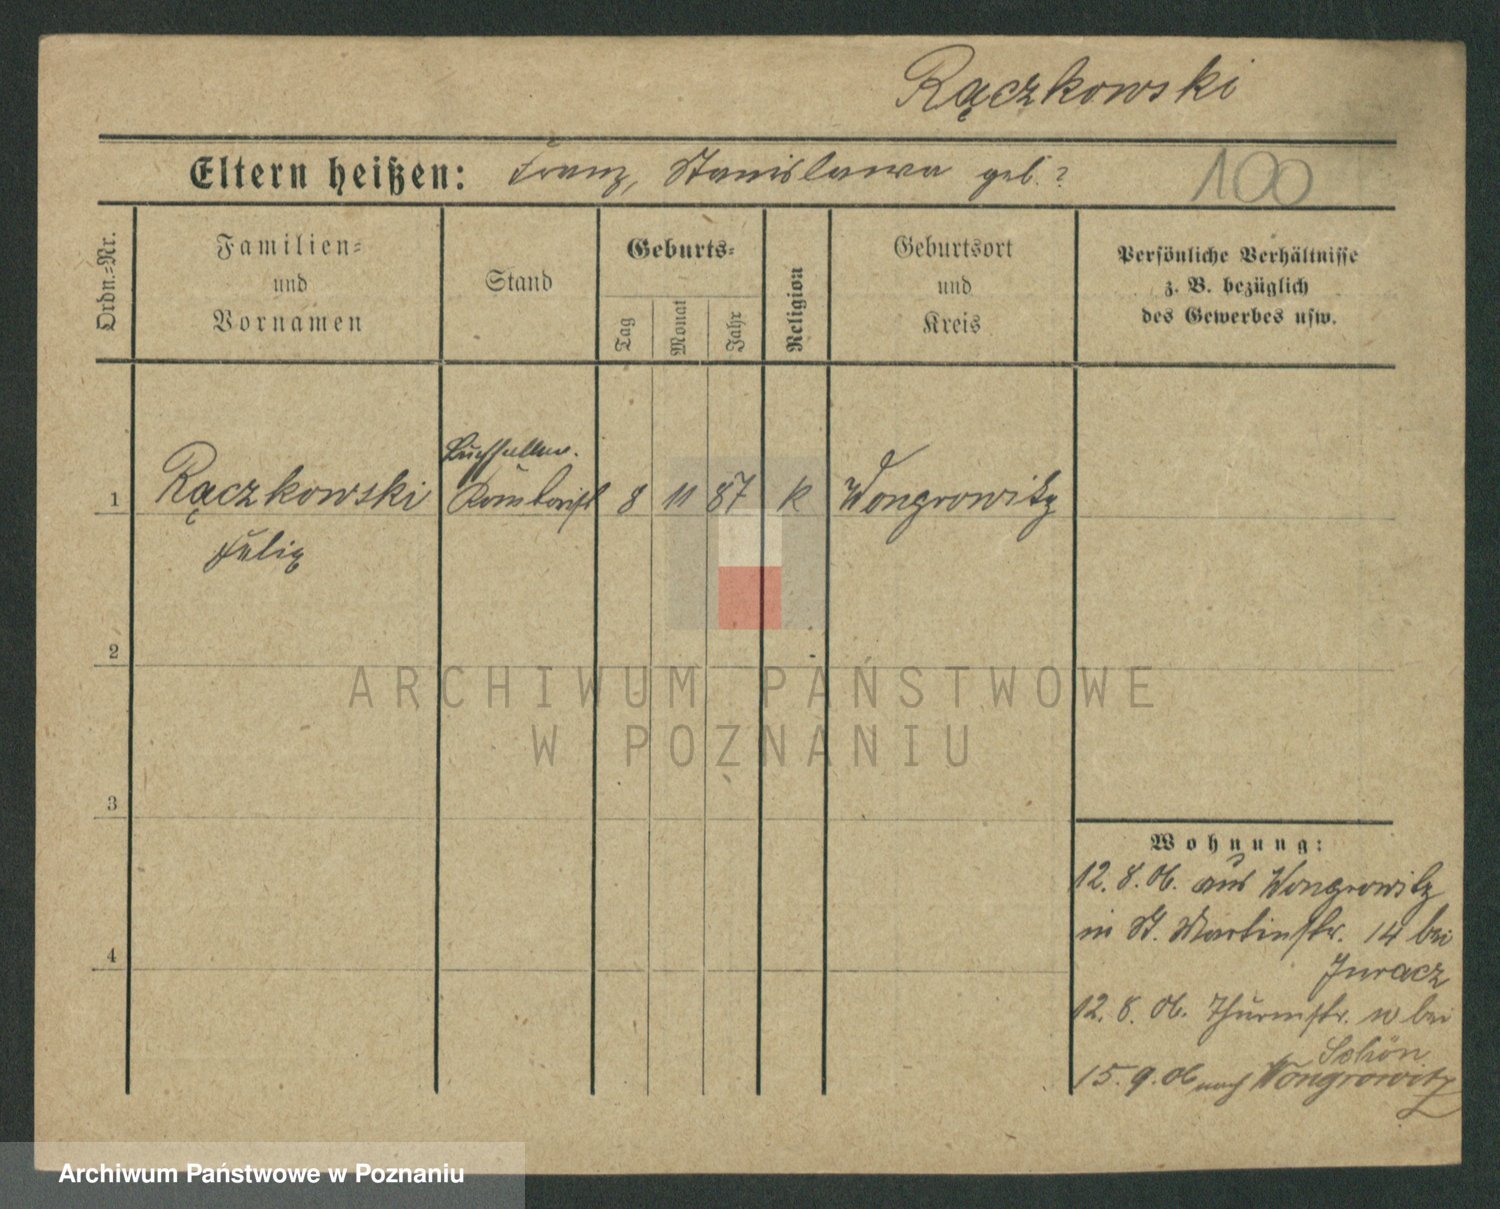 Rączkowski
Eltern heißen: Franz, Stanislawa geb. ?
100
Ordn.=Nr.
Familien=
und
Vornamen
Stand
Geburts=
Tag
Monat
Jahr
Religion
Geburtsort
und
Kreis
Persönliche Verhältnisse
z. B. bezüglich
des Gewerbes usw.
1
Rączkowski
Felix
8
11
87
K
Wongrowitz
2
3
4
Wohnung:
12. 8. 06. aus Wongrowitz
in St. Martinstr. 14 bei
Juracz
12. 8. 06. Thurmstr. 10 bei
Schön
15. 9. 06 nach Wongrowitz
ARCHIWUM PAŃSTWOWE
W POZNANIU
Archiwum Państwowe w Poznaniu